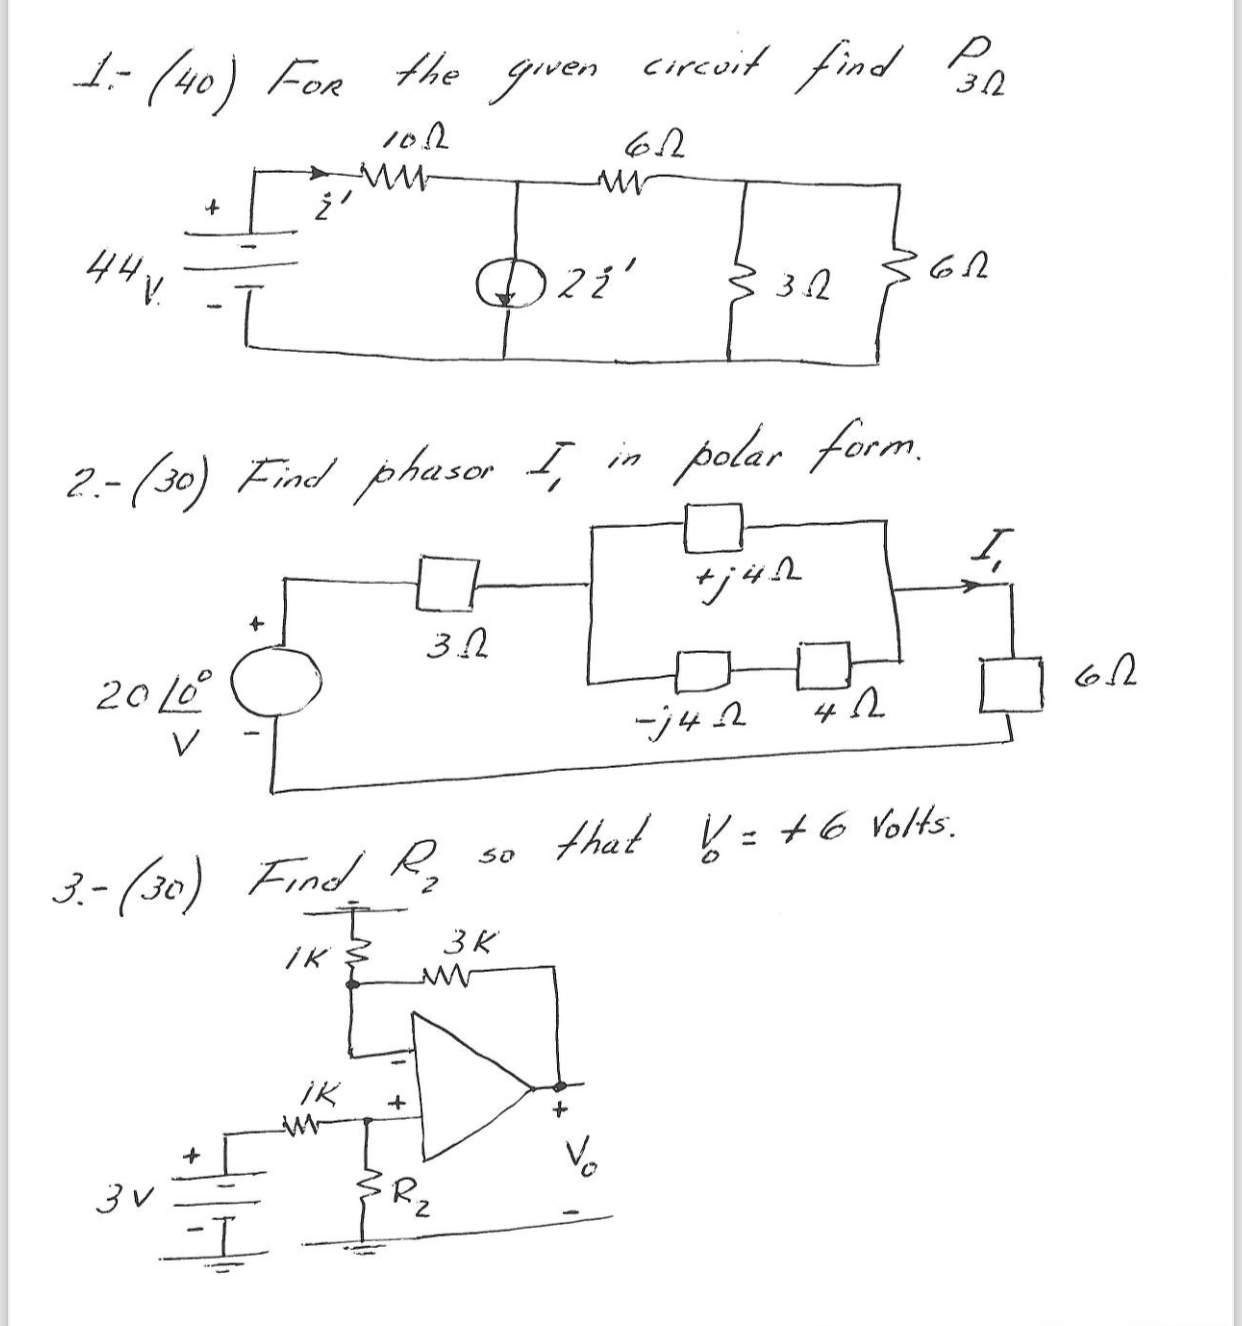 1.- (40) FOR the given circuit find P3Ω
10Ω 6Ω
+ i'
44V. - 2i' 3Ω 6Ω
-
2.- (30) Find phasor I1 in polar form.
+j4Ω I1
+ 3Ω
20∠0° V - -j4Ω 4Ω 6Ω
3.- (30) Find R2 so that Vo = +6 Volts.
1K 3K
-
1K + +
+ Vo
3V - R2 -
-